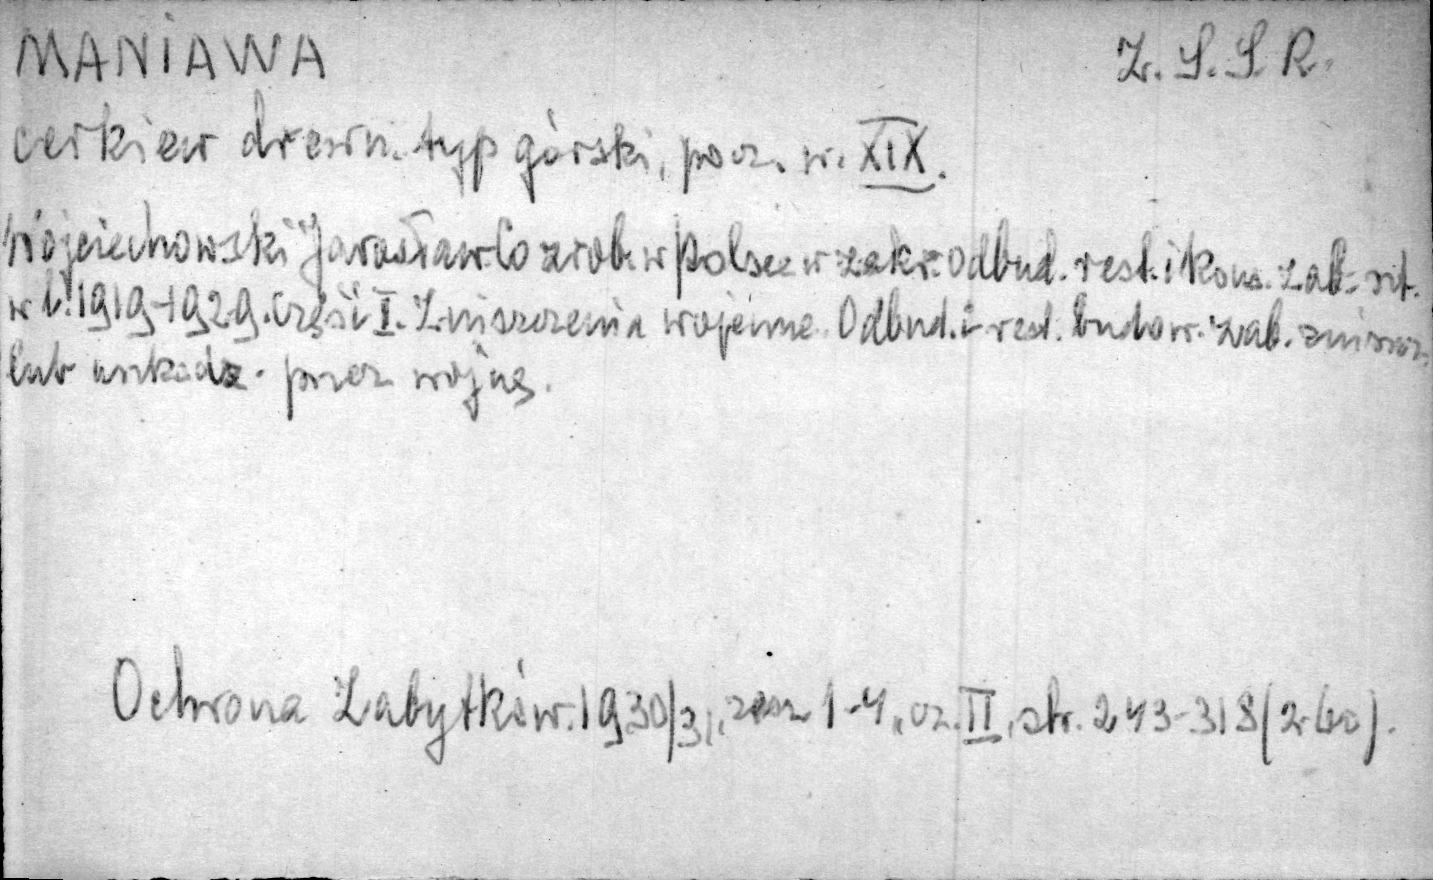 MANIAWA Z.S.S.R.
cerkiew drewn. typ górski, pocz. w. XIX.
Wojciechowski Jarosław. Co zrob. w Polsce w zakr. odbud. rest. i kons. zab. szt.
w l. 1919-1929. Część I. Zniszczenia wojenne. Odbud. i rest. budow. zab. zniszcz.
lub uszkodz. przez wojnę.
Ochrona Zabytków. 1930/31, zesz 1-4, cz. II, str. 243-318 (260).